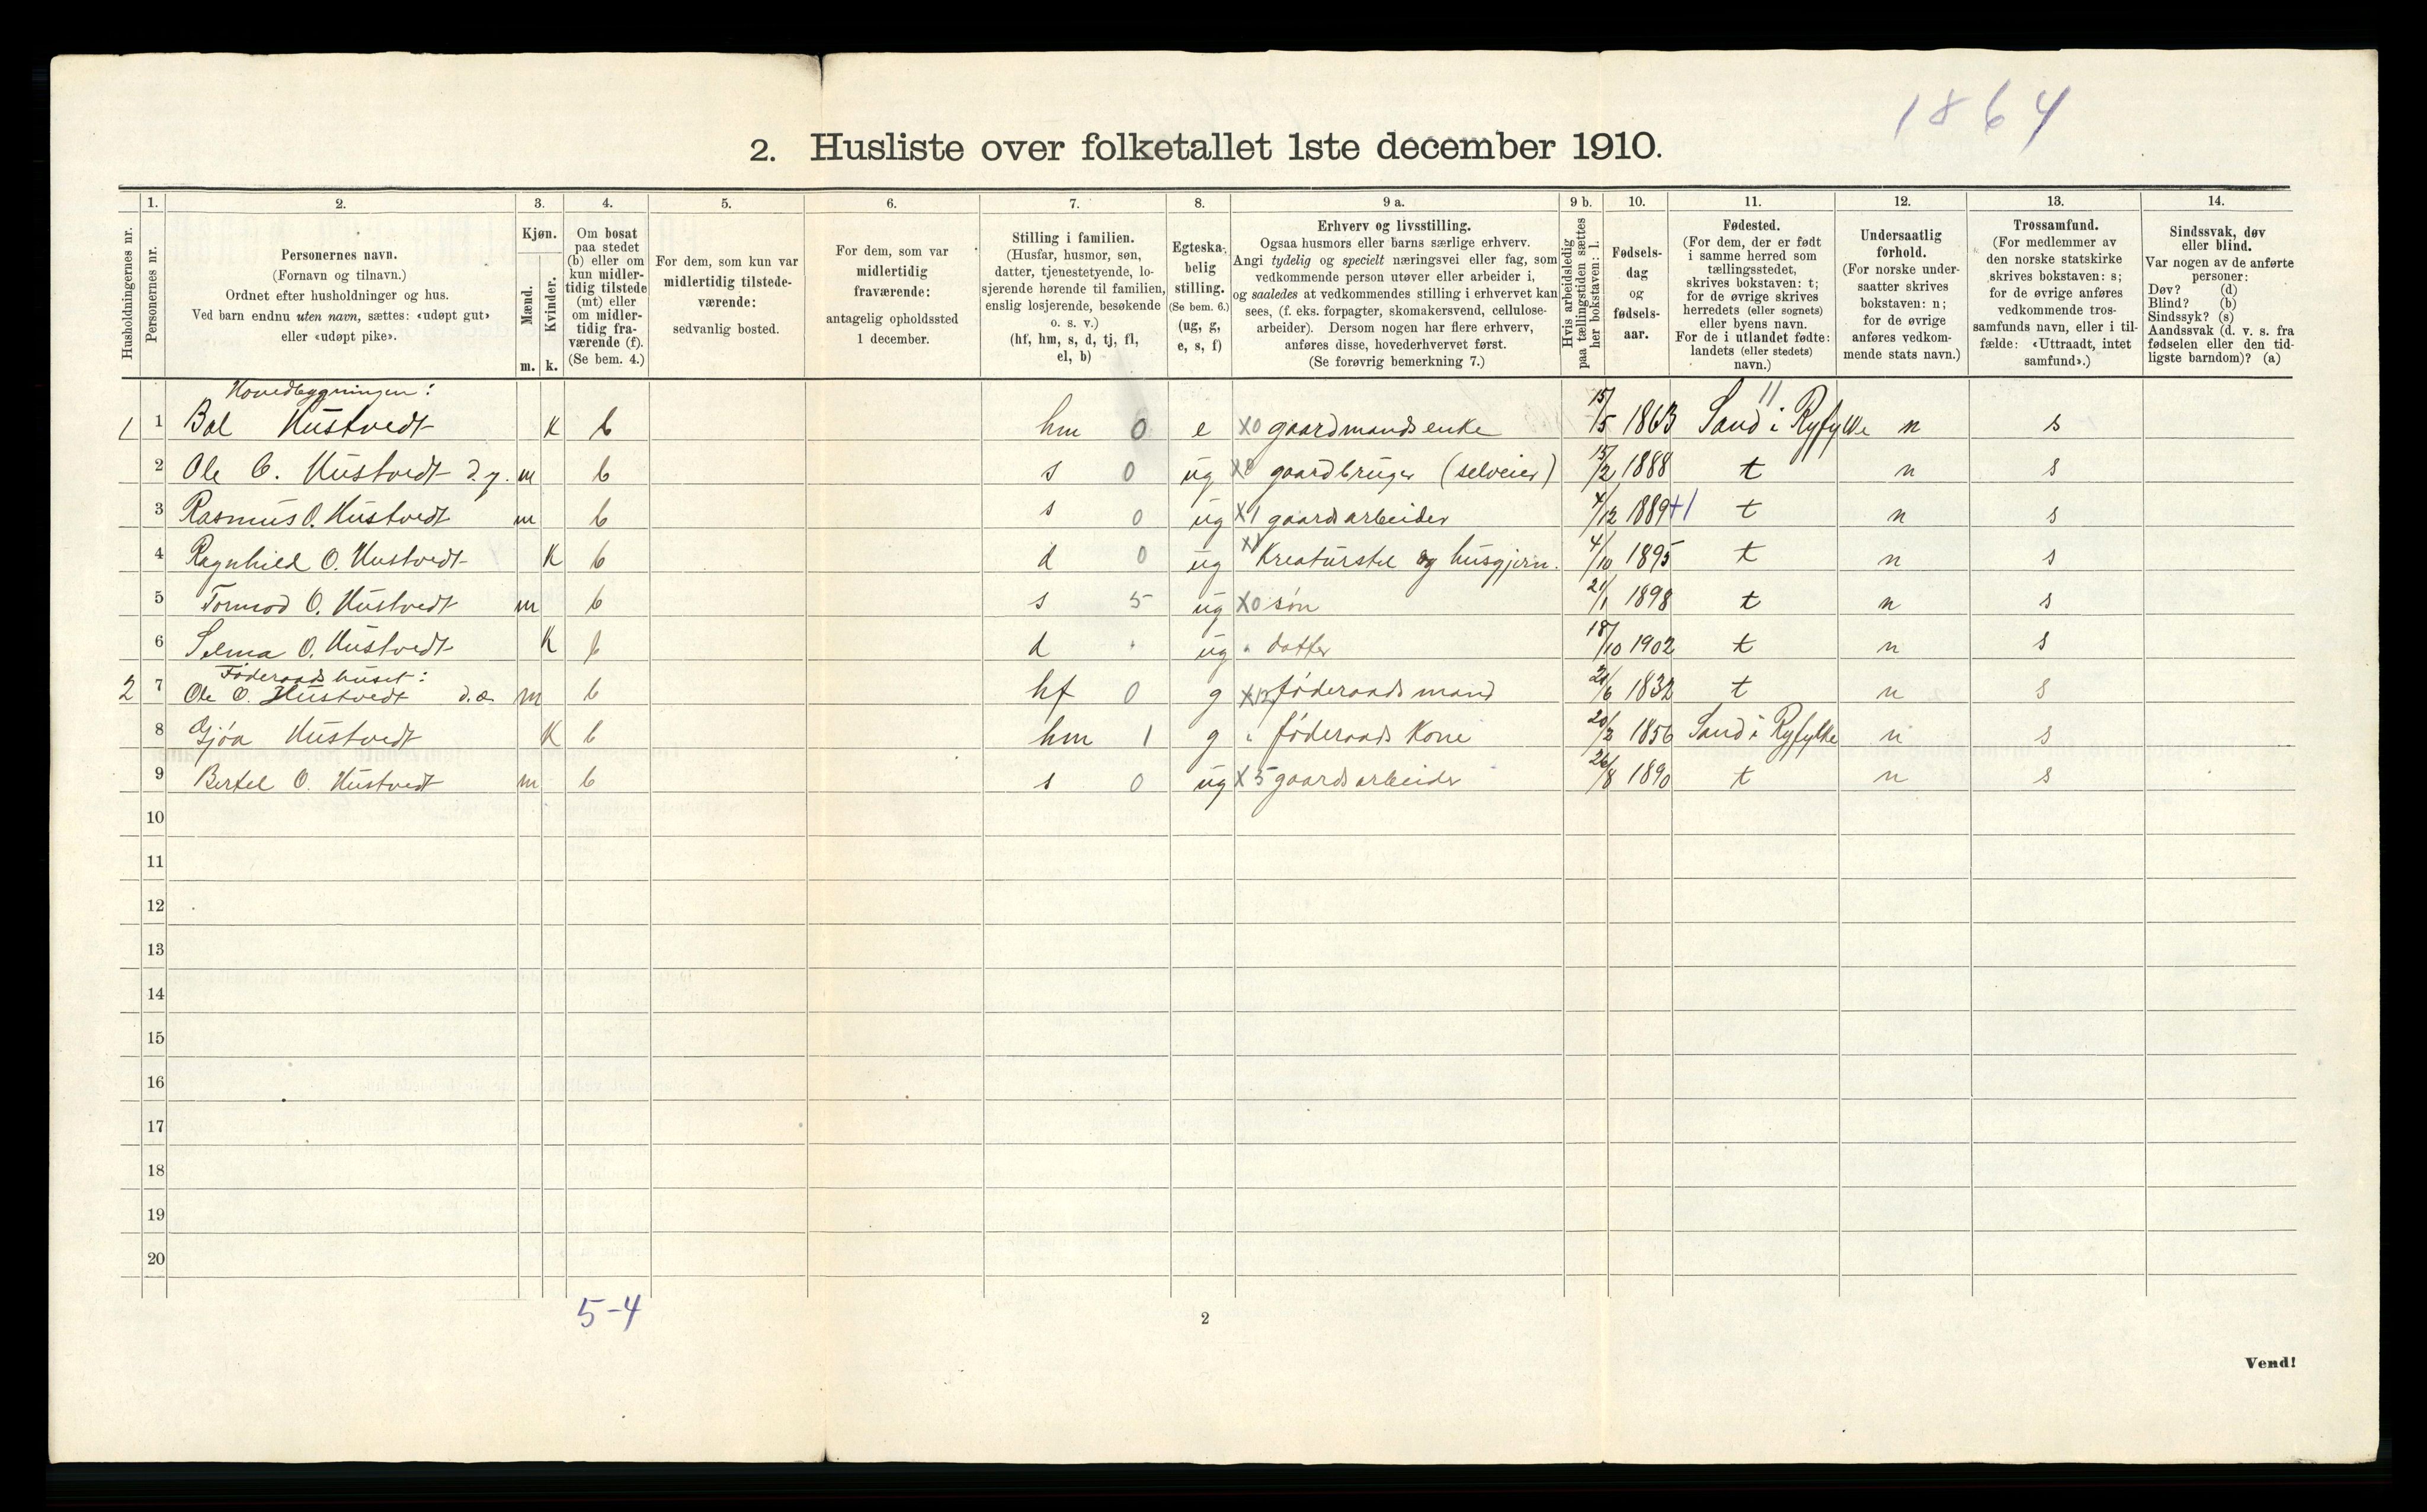 1864
2. Husliste over folketallet 1ste december 1910.
Husholdningernes nr.
1.
Personernes nr.
2.
Personernes navn.
(Fornavn og tilnavn.)
Ordnet efter husholdninger og hus.
Ved barn endnu uten navn, sættes: «udøpt gut»
eller «udøpt pike».
3.
Kjøn.
Mænd.
Kvinder.
m. k.
4.
Om bosat
paa stedet
(b) eller om
kun midler-
tidig tilstede
(mt) eller
om midler-
tidig fra-
værende (f).
(Se bem. 4.)
5.
For dem, som kun var
midlertidig tilstede-
værende:
sedvanlig bosted.
6.
For dem, som var
midlertidig
fraværende:
antagelig opholdssted
1 december.
7.
Stilling i familien.
(Husfar, husmor, søn,
datter, tjenestetyende, lo-
sjerende hørende til familien,
enslig losjerende, besøkende
o. s. v.)
(hf, hm, s, d, tj, fl,
el, b)
8.
Egteska-
belig
stilling.
(Se bem. 6.)
(ug, g,
e, s, f)
9 a.
Erhverv og livsstilling.
Ogsaa husmors eller barns særlige erhverv.
Angi tydelig og specielt næringsvei eller fag, som
vedkommende person utøver eller arbeider i,
og saaledes at vedkommendes stilling i erhvervet kan
sees, (f. eks. forpagter, skomakersvend, cellulose-
arbeider). Dersom nogen har flere erhverv,
anføres disse, hovederhvervet først.
(Se forøvrig bemerkning 7.)
9 b.
Hvis arbeidsledig
paa tællingstiden sættes
her bokstaven: l.
10.
Fødsels-
dag
og
fødsels-
aar.
11.
Fødested.
(For dem, der er født
i samme herred som
tællingsstedet,
skrives bokstaven: t;
for de øvrige skrives
herredets (eller sognets)
eller byens navn.
For de i utlandet fødte:
landets (eller stedets)
navn.)
12.
Undersaatlig
forhold.
(For norske under-
saatter skrives
bokstaven: n;
for de øvrige
anføres vedkom-
mende stats navn.)
13.
Trossamfund.
(For medlemmer av
den norske statskirke
skrives bokstaven: s;
for de øvrige anføres
vedkommende tros-
samfunds navn, eller i til-
fælde: «Uttraadt, intet
samfund».)
14.
Sindssvak, døv
eller blind.
Var nogen av de anførte
personer:
Døv? (d)
Blind? (b)
Sindssyk? (s)
Aandssvak (d. v. s. fra
fødselen eller den tid-
ligste barndom)? (a)
Hovedbygningen: 11
1 1 Bol Hustvedt K b hm 0 e X0 gaardmandsenke 15/5 1863 Sand i Ryfylke n s
2 Ole O. Hustvedt d.y. m b s 0 ug gaardbruger (selveier) 15/2 1888 t n s
3 Rasmus O. Hustvedt m b s 0 ug X1 gaardsarbeider 4/12 1889 +1 t n s
4 Ragnhild O. Hustvedt K b d 0 ug Kreaturstel og husgjern. 4/10 1895 t n s
5 Tormod O. Hustvedt m b s 5 ug X0 søn 21/1 1898 t n s
6 Selma O. Hustvedt K b d " ug " datter 18/10 1902 t n s
Føderaadshuset:
2 7 Ole O. Hustvedt d.æ. m b hf 0 g X12 føderaadsmand 1832 t n s
8 Gjøa Hustvedt K b hm 1 g " føderaads Kone 20/2 1856 Sand i Ryfylke n s
9 Bertel O. Hustvedt m b s 0 ug X5 gaardsarbeider 26/8 1890 t n s
10
11
12
13
14
15
16
17
18
19
20
5-4
2
Vend!